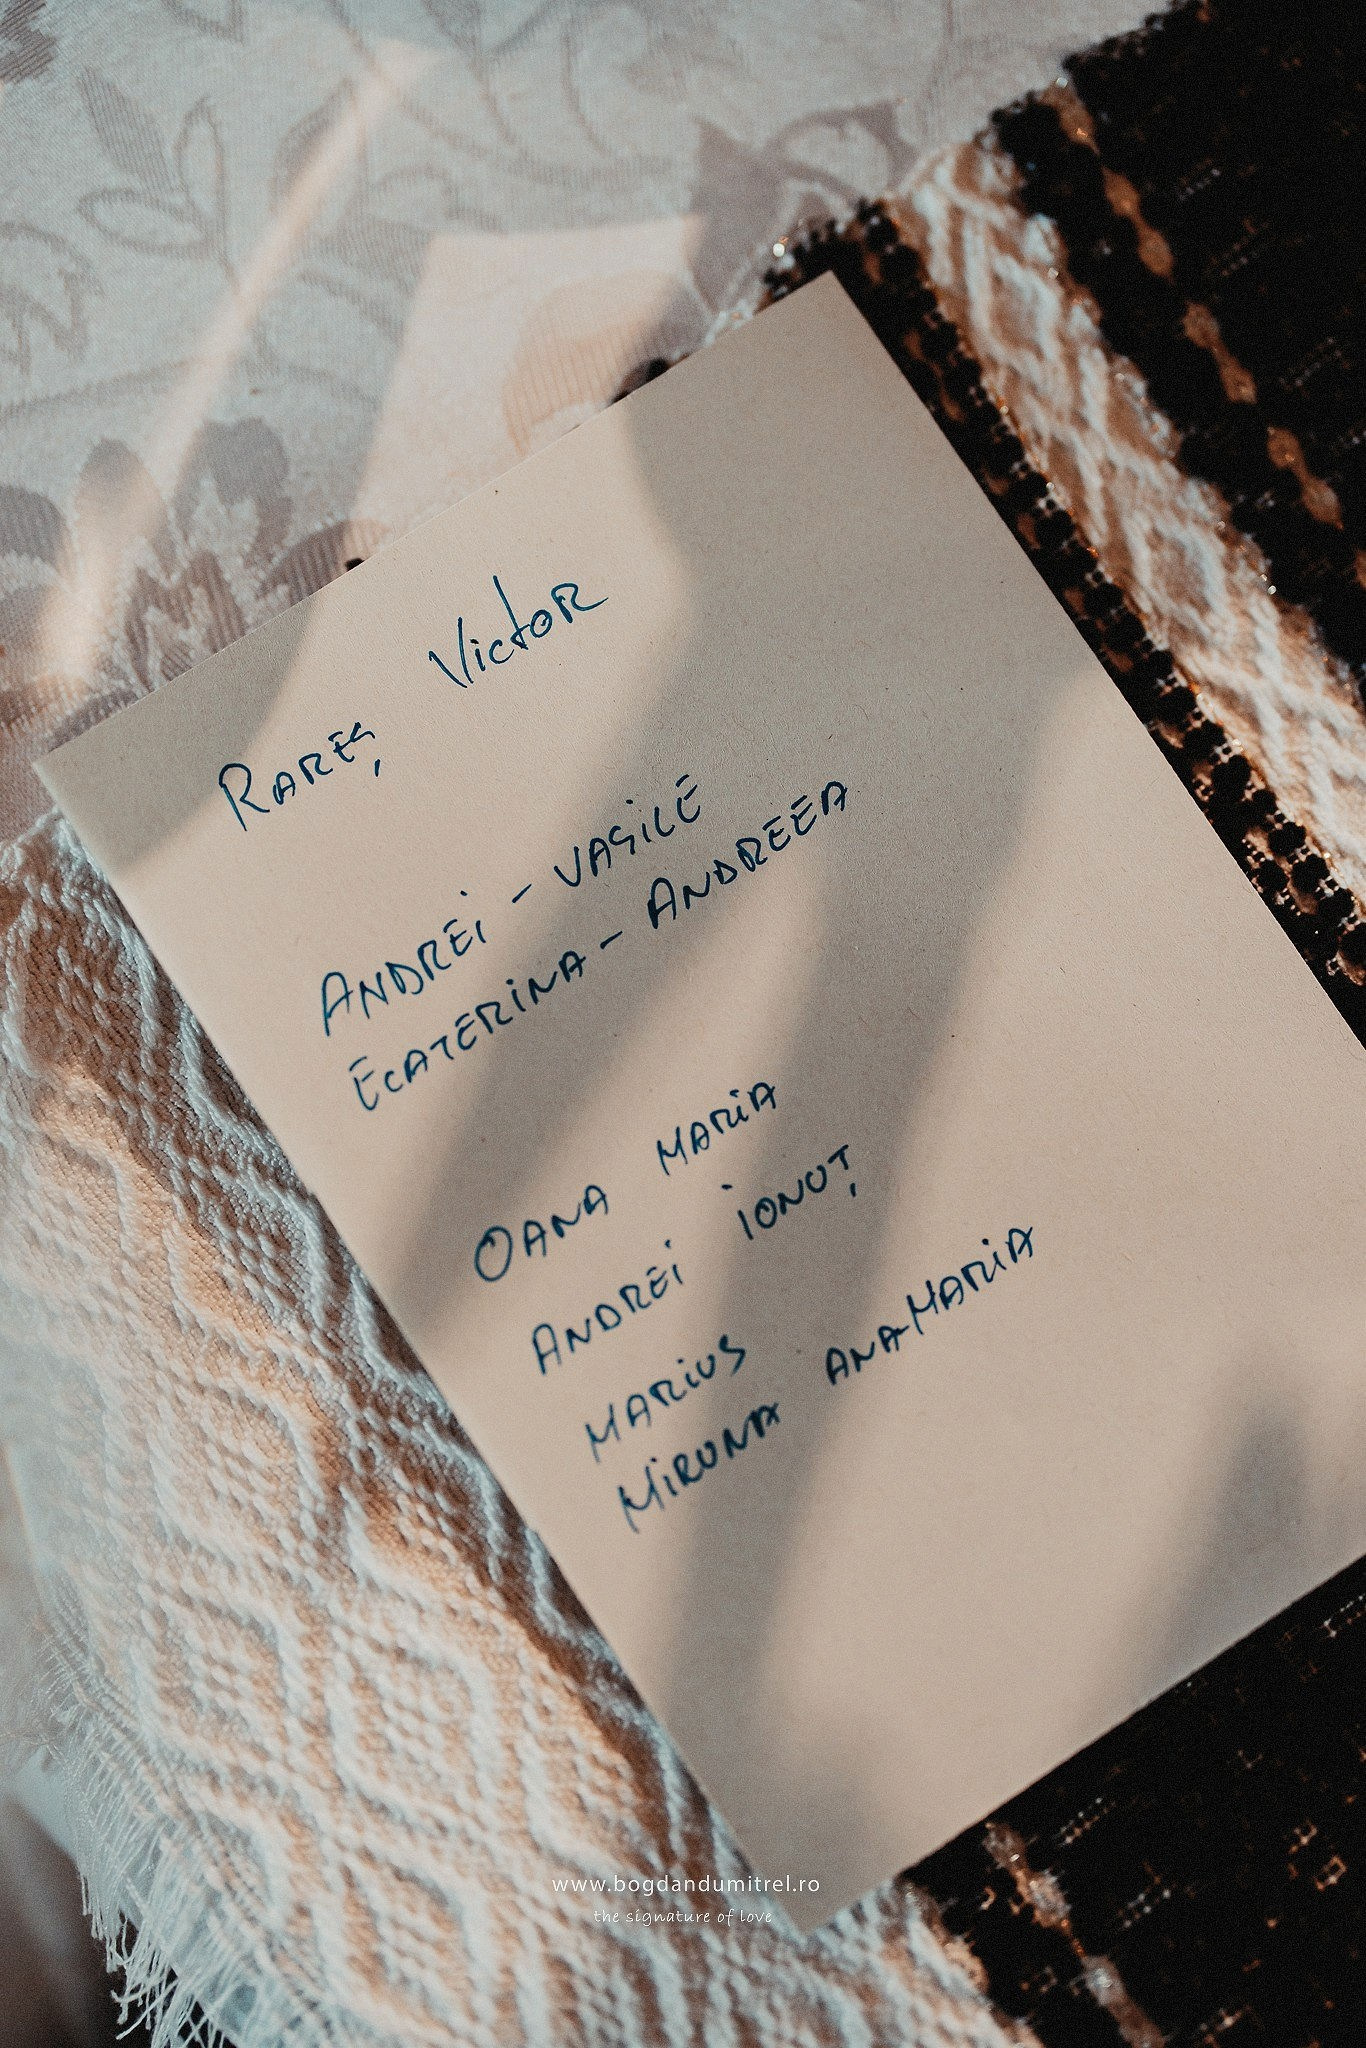 Rareș Victor
Andrei - Vasile
Ecaterina - Andreea
Oana Maria
Andrei Ionuț
Marius
Miruna Ana-Maria
www.bogdandumitrel.ro
the signature of love